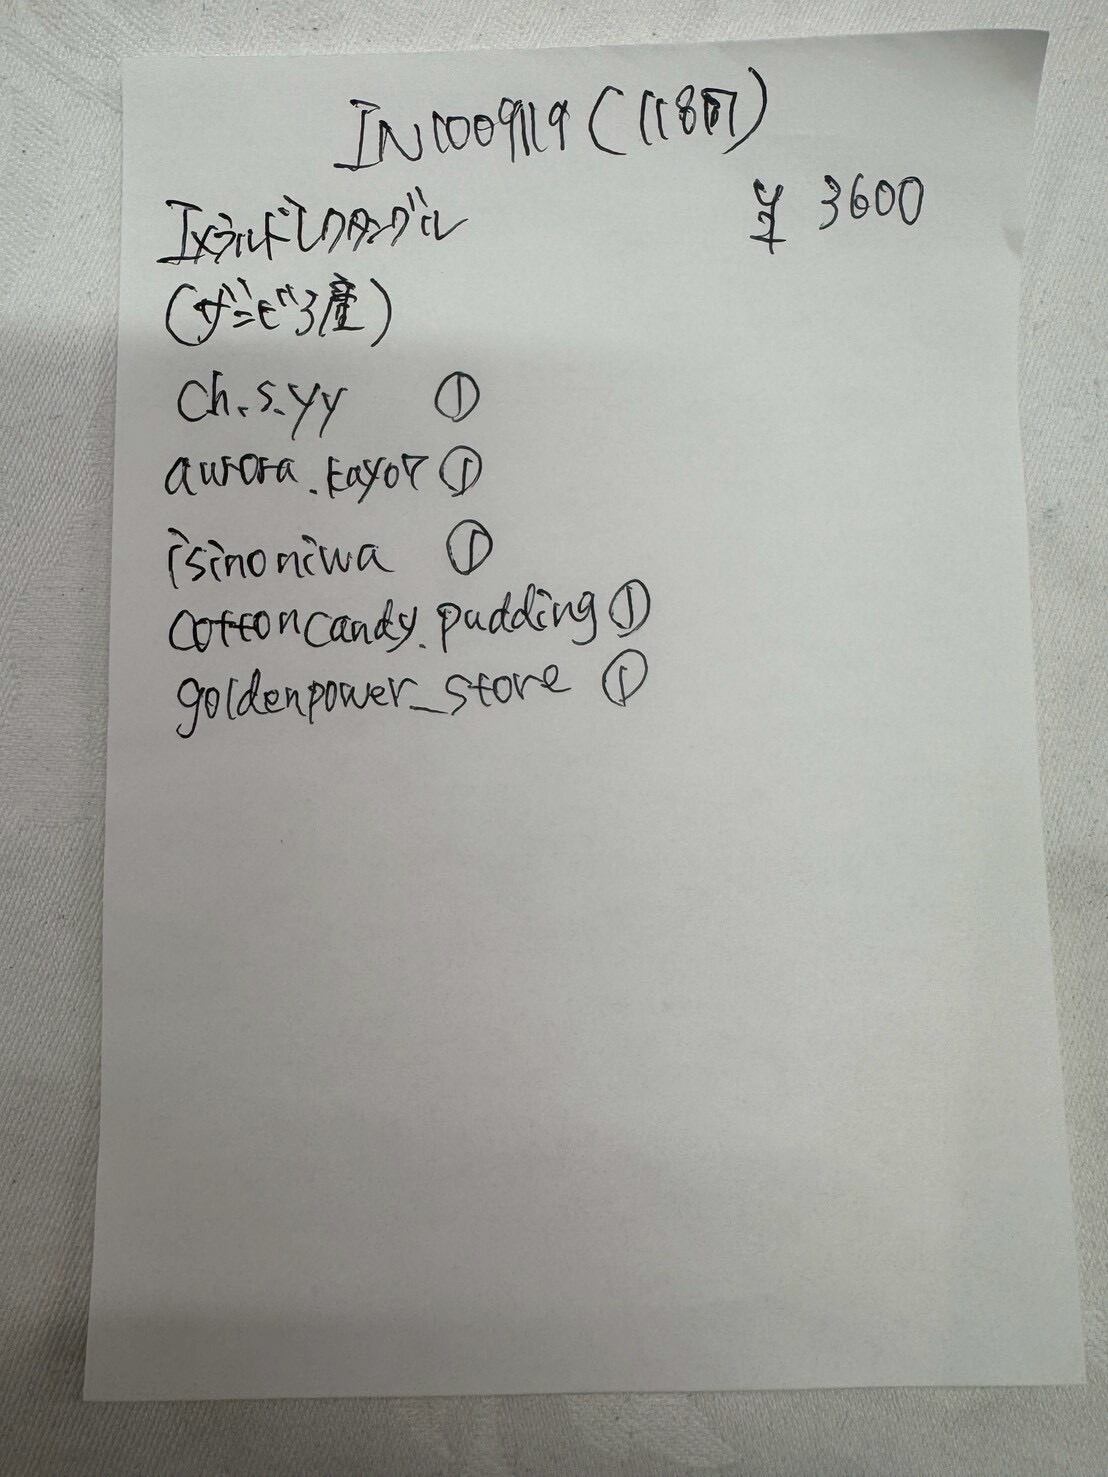 IN1009119(11807)
エメラルドレクタングル ¥ 3600
(ザンビア産)
ch.s.yy ①
aurora.kayo7 ①
isinoniwa ①
cottoncandy.pudding ①
goldenpower_store ①